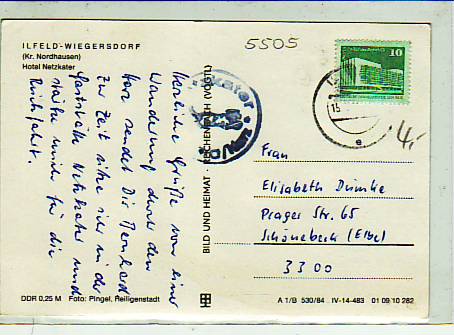 5505
ILFELD-WIEGERSDORF
(Kr. Nordhausen)
Hotel Netzkater
Herzliche Grüße von einer
Wanderung durch den
Harz sendet Dir Bernhard
Zur Zeit sitze ich in der
Gaststätte Netzkater und
stärke mich für die
Rückfahrt.
BILD UND HEIMAT · REICHENBACH (VOGTL)
10
4,-
Frau
Elisabeth Dumke
Prager Str. 65
Schönebeck (Elbe)
3300
DDR 0,25 M Foto: Pingel, Heiligenstadt
A 1/B 530/84 IV-14-483 01 09 10 282